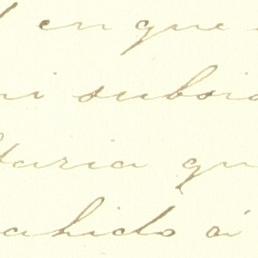 en que
ni subsi
taria qu
ahido á